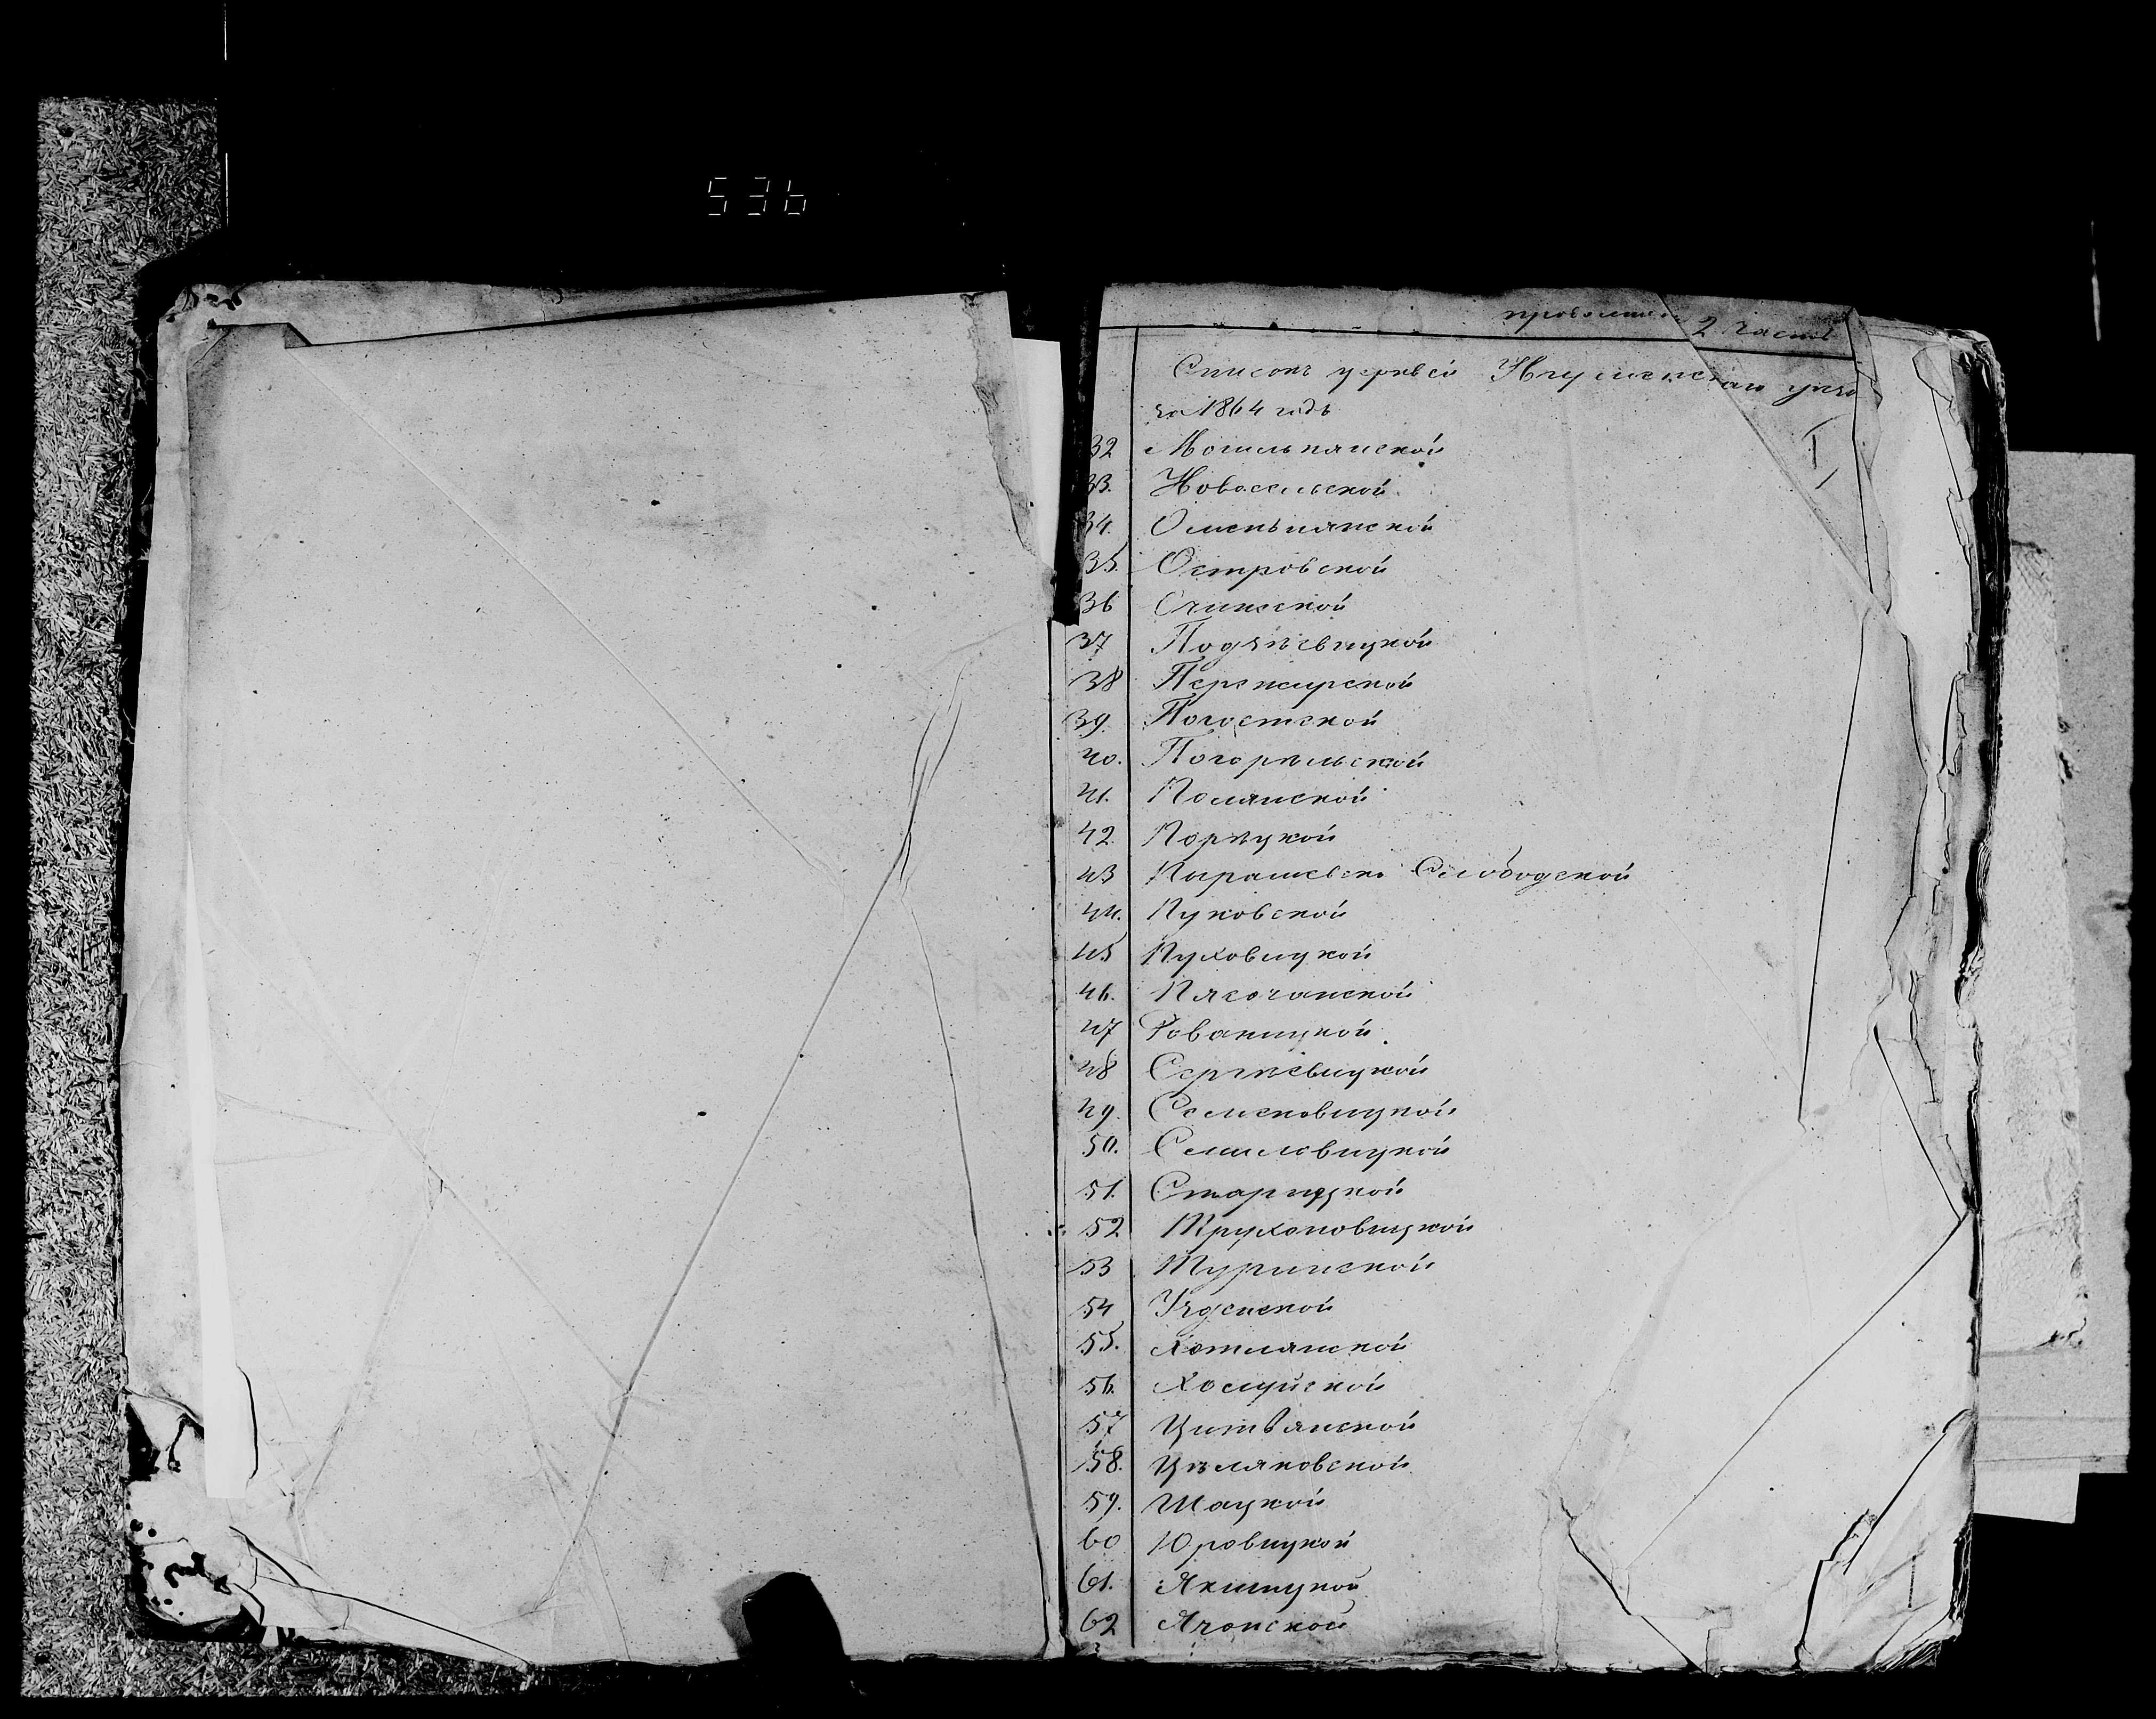 536
2 часть
Списокъ церквей Игуменскаго уезд
за 1864 годъ
32 Могильнянской
33. Новосельской
34. Омельнянской
35. Островской
36 Оčижской
37 Подъѣвицкой
38 Пережирской
39. Погостской
40. Погорѣльской
41. Полянской
42. Порѣцкой
43 Пырашевско Слободской
44. Пуковской
45 Пуховицкой
46. Пясочанской
47 Рованицкой
48 Сергѣевицкой
49. Селековицкой
50. Смиловицкой
51. Старицкой
52 Трухоновицкой
53 Туринской
54 Узденской
55. Хотлянской
56. Холуйской
57 Цитвянской
58. Цѣляковской
59. Шацкой
60 Юровицкой
61. Якшицкой
62 Ячонской